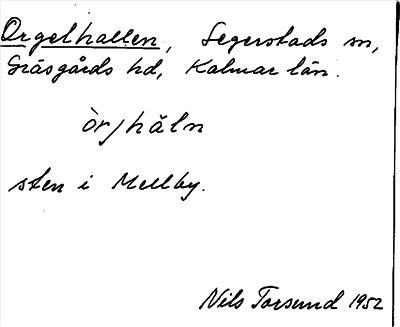 Orgelhallen, Segerstads sn,
Gräsgårds hd, Kalmar län.
òrjhäln
sten i Mellby.
Nils Torsund 1952